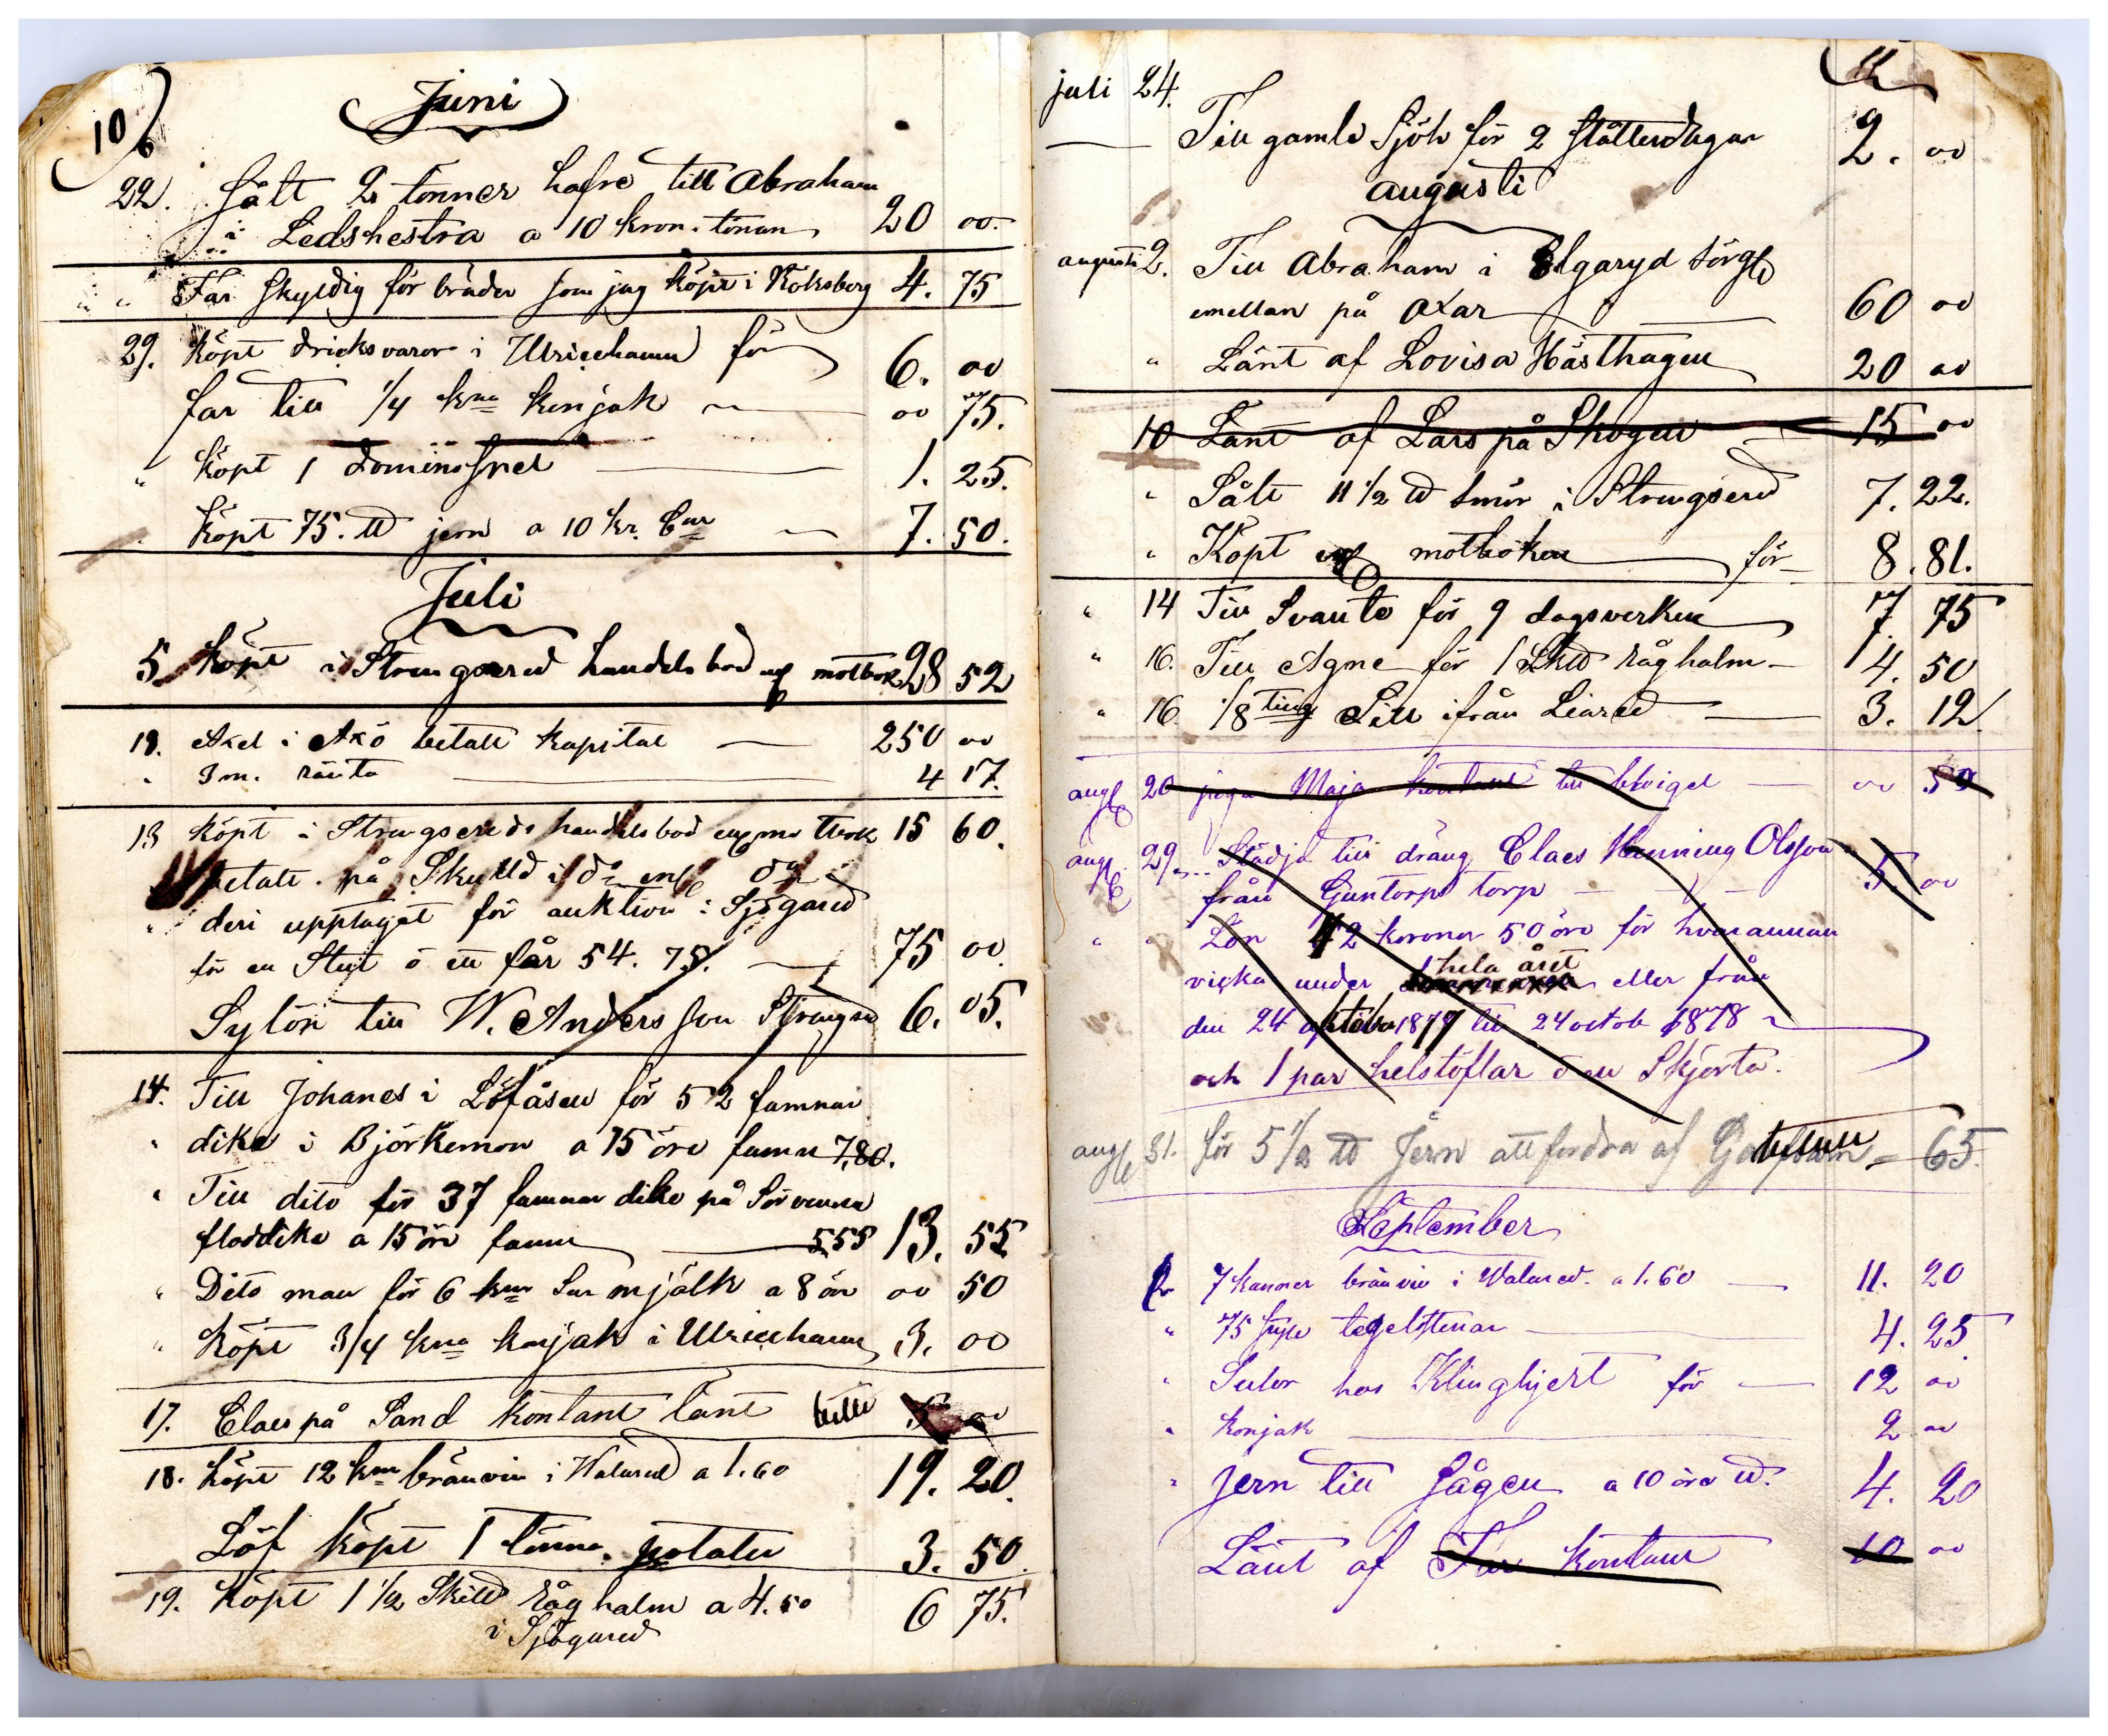 10
Juni
22. Sålt 2 tonner hafre till Abraham
i Ledshestra a 10 kron. tönan 20 00.
" Far Skyldig för bräder som jag köpt i Kölsberg 4. 75
29. Köpt dricksvaror i Ulricehamn för 6. 00
far till 1/4 kna konjak 00 75.
" Köpt 1 dominospel 1. 25.
" Köpt 75. ℔ jern a 10 kr. 7. 50.
Juli
5 Köpt i Strengsered handelsbod motbok 28 52
12. Axel i betalt kapital 250 00
" 3 m. ränta 4 17.
13 Köpt i Strengsereds handelsbod 15 60.
betalt på
" deri upptaget för auktion i Sjögared
för en Stut o ett får 54. 75. 75 00.
Sylön till W. Andersson 6. 05.
14. Till Johanes i Löfåsen för 52 famnar
" dike i Björkemon a 15 öre famn 7,80.
" Till dito för 37 famnar dike på
floddike a 15 öre famn 5 55 13. 55
" Dito man för 6 knr Sur mjölk a 8 öre 00 50
" Köpt 3/4 kna konjak i Ulricehamn 3. 00
17. Claes på Sand kontant lånt 5 00
18. Köpt 12 knr bränvin i Walared a 1.60 19. 20.
Löf köpt 1 tönna potater 3. 50.
19. Köpt 1 1/2 råghalm a 4.50 6 75.
i Sjögared
11
juli 24.
Till gamle Sjöh för 2 slåtterdagar 2. 00
augusti
augusti 2. Till Abraham i Elgaryd
emellan på Oxar 60 00
" Lånt af Lovisa Hästhagen 20 00
10 Lånt af Lars på Skogen 15 00
" Sålt 11 1/2 ℔ smör i Strengsered 7. 22.
" Köpt motboken för 8. 81.
" 14 Till Svante för 9 dagsverken 7. 75
" 16. Till Agne för 1 råghalm 4. 50
" 16. 1/8 ting Sill ifrån Liared 3. 12.
aug 20 piga Maja kontant till 00 50
aug. 29. Städja till dräng Claes Henning Olsson
från Guntorps torp 5. 00
" " Lön 42 koronor 50 öre för hvarannan
vicka under hela året eller från
den 24 oktober 1877 till 24 octob 1878
och 1 par helstöflar o en Skjorta.
aug 31. för 5 1/2 ℔ Jern att fordra af 65.
September
2. 7 kannor bränvin i Walared. a 1.60 11. 20
" 75 tegelstenar 4. 25
" hos Klinghjert för 12 00
" Konjak 2 00
" Jern till Sågen a 10 öre ℔. 4. 20
Lånt af Far kontant 10 00